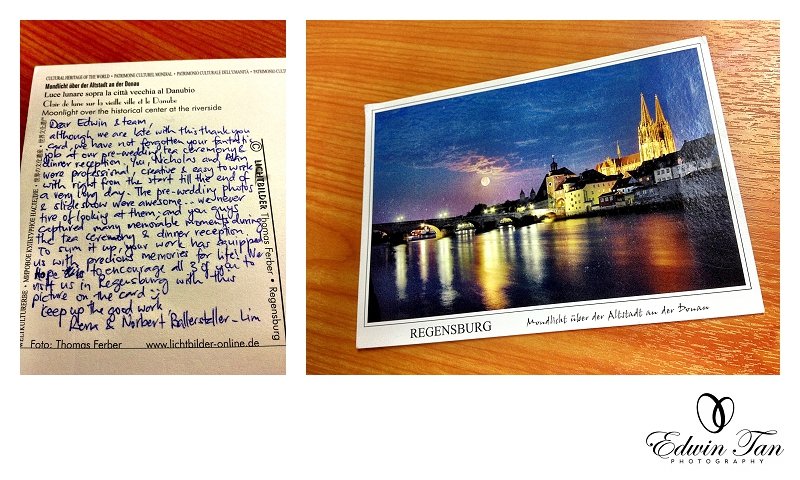 CULTURAL HERITAGE OF THE WORLD • PATRIMOINE CULTUREL MONDIAL • PATRIMONIO CULTURALE DELL'UMANITÀ • PATRIMONIO CULT
Mondlicht über der Altstadt an der Donau
Luce lunare sopra la città vecchia al Danubio
Clair de lune sur la vieille ville et le Danube
Moonlight over the historical center at the riverside
Dear Edwin & team,
although we are late with this thank you
card, we have not forgotten your fantastic
job at our pre-wedding, tea ceremony &
dinner reception. You, Nicholas and Alan
were professional, creative & easy to work
with right from the start till the end of
a very long day. The pre-wedding photos
& slideshow were awesome... we never
tire of looking at them; and you guys
captured many memorable moments during
the tea ceremony & dinner reception.
To sum it up, your work has equipped
us with precious memories for life! We
hope to encourage all 3 of you to
visit us in Regensburg with this
picture on the card :)
Keep up the good work
& Norbert Bollersteller-Lim
WELTKULTURERBE • МИРОВОЕ КУЛЬТУРНОЕ НАСЛЕДИЕ • 世界の文化遺産 •
© LICHTBILDER Thomas Ferber • Regensburg
Foto: Thomas Ferber
www.lichtbilder-online.de
REGENSBURG
Mondlicht über der Altstadt an der Donau
Edwin Tan
PHOTOGRAPHY